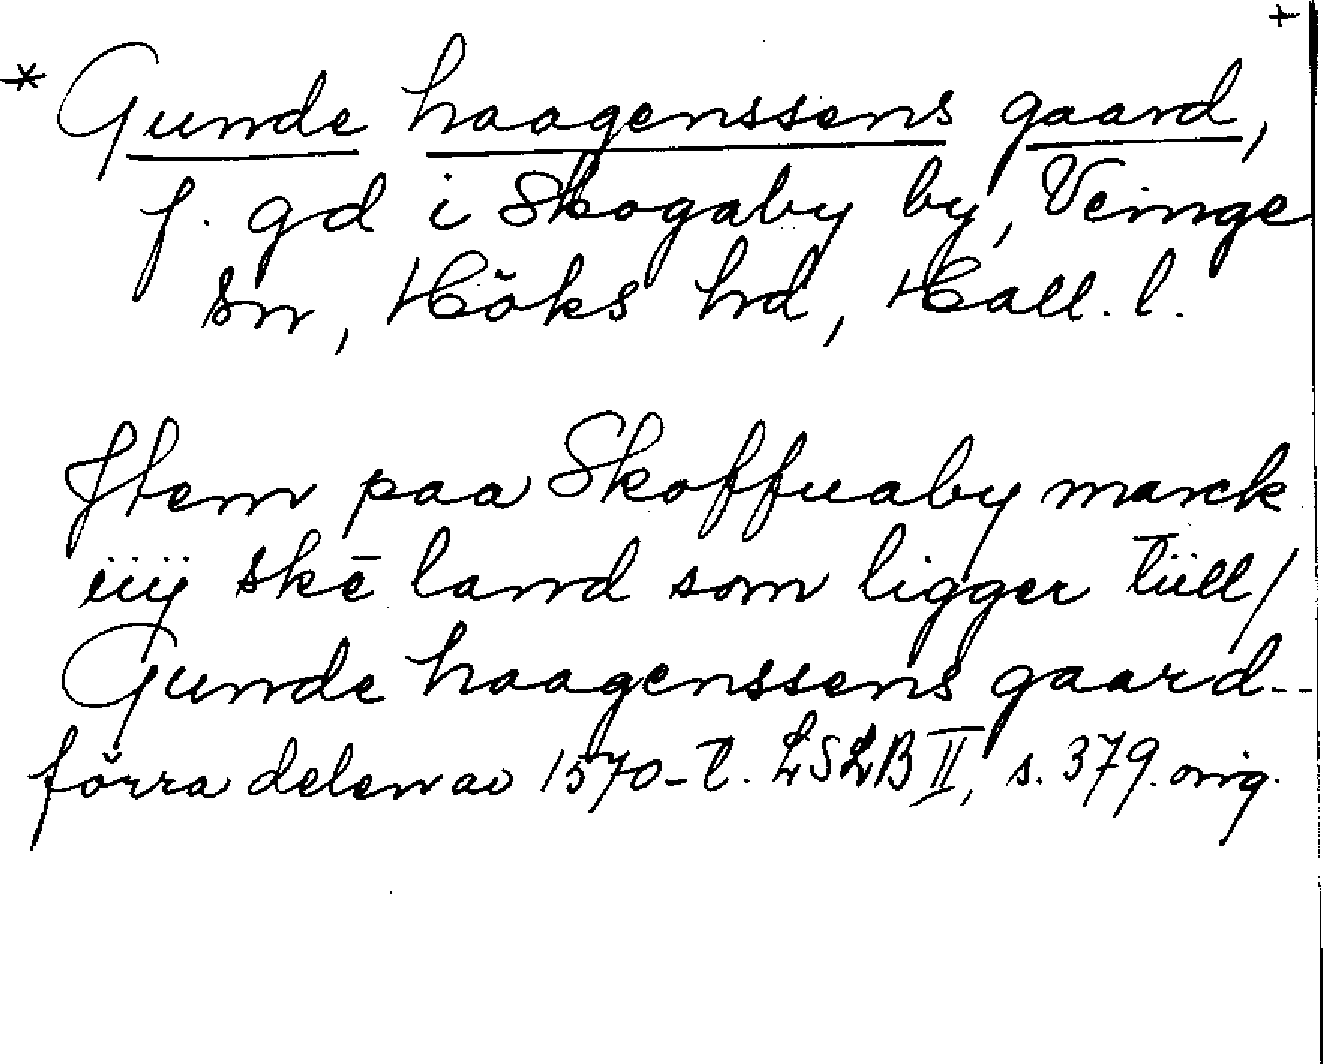 +
* Gunde haagenssens gaard,
f. gd i Skogaby by, Veinge
sn, Höks hd, Hall. l.
Item paa Skoffuaby marck
iiij skē land som ligger tiill/
Gunde haagenssens gaard--
förra delen av 1570-t. LSLB II, s. 379. orig.